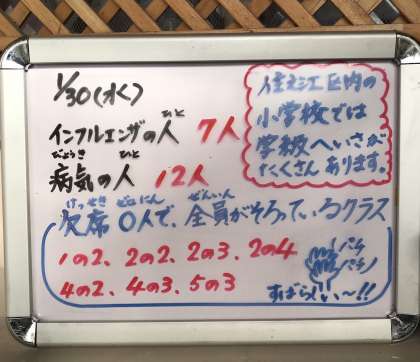 1/30(水)
インフルエンザの人 7人
病気の人 12人
住之江区内の
小学校では
学級へいさが
たくさん あります。
欠席 0人で、全員がそろっているクラス
1の2、2の2、2の3、2の4
4の2、4の3、5の3
パチ
パチ
すばらしい〜!!